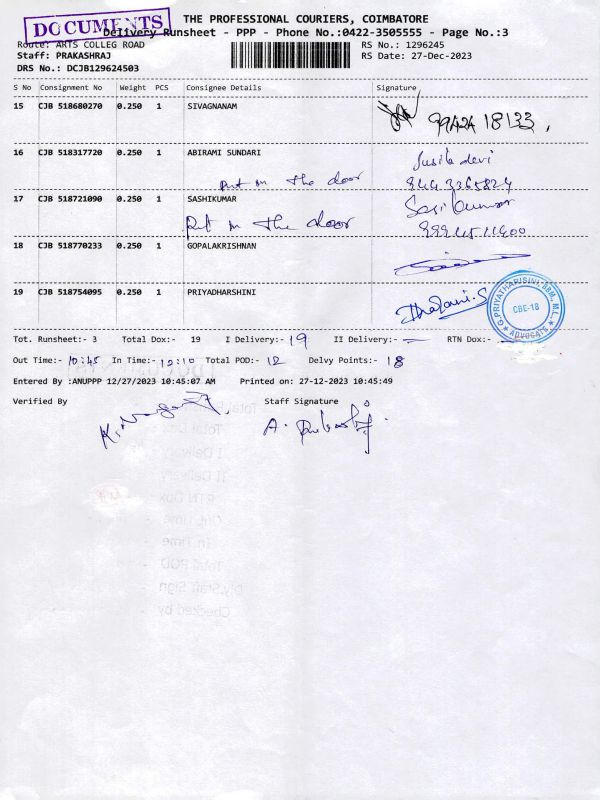 DOCUMENTS
THE PROFESSIONAL COURIERS, COIMBATORE
Delivery Runsheet - PPP - Phone No.:0422-3505555 - Page No.:3
Route: ARTS COLLEG ROAD RS No.: 1296245
Staff: PRAKASHRAJ RS Date: 27-Dec-2023
DRS No.: DCJB129624503
S No Consignment No Weight PCS Consignee Details Signature
15 CJB 518680270 0.250 1 SIVAGNANAM
99424 18133,
16 CJB 518317720 0.250 1 ABIRAMI SUNDARI Susila devi
Put in the door
17 CJB 518721090 0.250 1 SASHIKUMAR Sasikumar
Put in the door
18 CJB 518770233 0.250 1 GOPALAKRISHNAN
19 CJB 518754095 0.250 1 PRIYADHARSHINI
G.PRIYATHARISINI, BBM, M.L.,
CBE-18
ADVOCATE
Tot. Runsheet:- 3 Total Dox:- 19 I Delivery:- 19 II Delivery:- — RTN Dox:- —
Out Time:- 10:45 In Time:- 12:10 Total POD:- 12 Delvy Points:- 18
Entered By :ANUPPP 12/27/2023 10:45:07 AM Printed on: 27-12-2023 10:45:49
Verified By Staff Signature